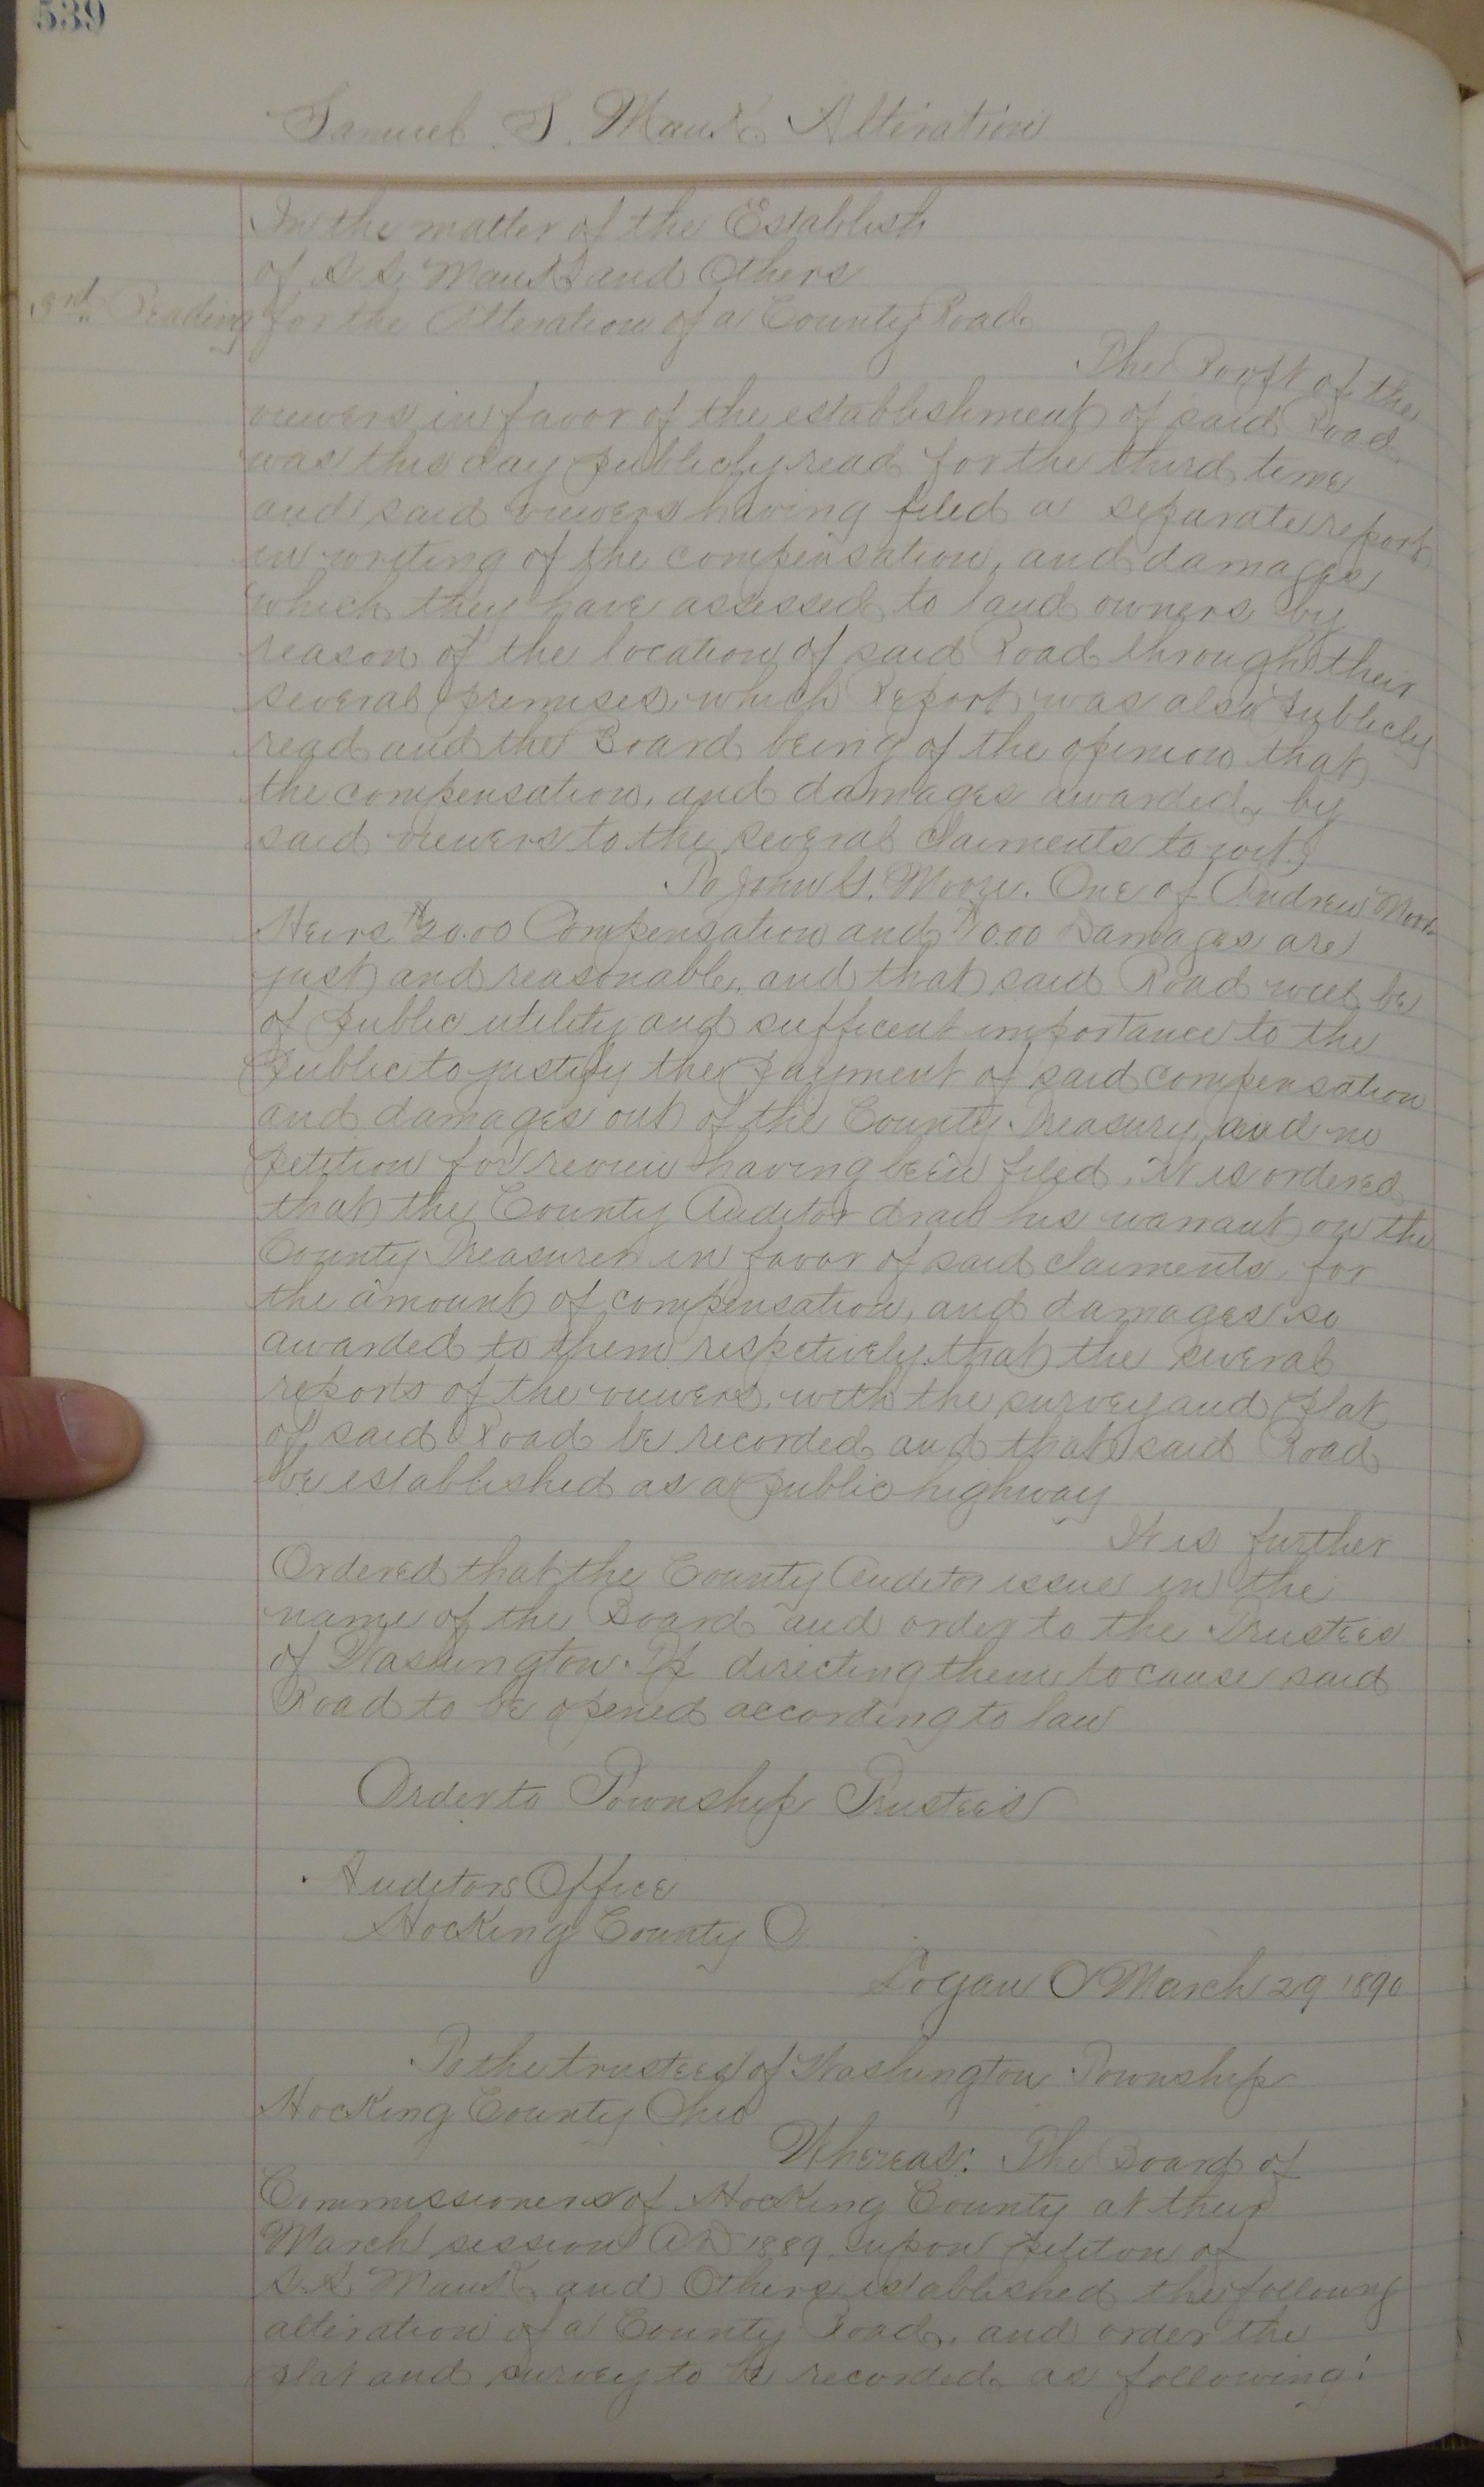 539
Samuel S. Mauk's Alteration
In the matter of the Establish
of S. S. Mauk and Others
3rd Reading for the Alteration of a County Road
The Report of the
viewers in favor of the establishment of said Road
was this day publicly read for the third time
and said viewers having filed a separate report
in writing of the compensation, and damages
which they have assessed to land owners by
reason of the location of said Road through their
several premises, which Report was also publicly
read and the Board being of the opinion that
the compensation, and damages awarded, by
said viewers to the several claiments to wit;
To John G. Moore. One of Andrew Moore
Heirs $20.00 Compensation and Damages are
just and reasonable, and that said Road will be
of public utility and sufficent importance to the
public to justify the payment of said compensation
and damages out of the County Treasury, and no
petition for review having been filed, it is ordered
that the County Auditor draw his warrant on the
County Treasurer in favor of said claiments, for
the amount of compensation, and damages so
awarded to them respctively. that the several
reports of the viewers, with the survey and plat
of said Road be recorded and that said Road
be established as a public highway
It is further
Ordered that the County Auditor issue in the
name of the Board and order to the Trustees
of Washington Tp directing them to cause said
Road to be opened according to law
Order to Township Trustees
Auditors Office
Hocking County O
Logan O March 29 1890
To the trustees of Washington Township
Hocking County Ohio
Whereas: The Board of
Commissioners of Hocking County at their
March session AD 1889, upon petiton of
S. S. Mauk and Others established the following
alteration of a County Road, and order the
plat and survey to be recorded as following: